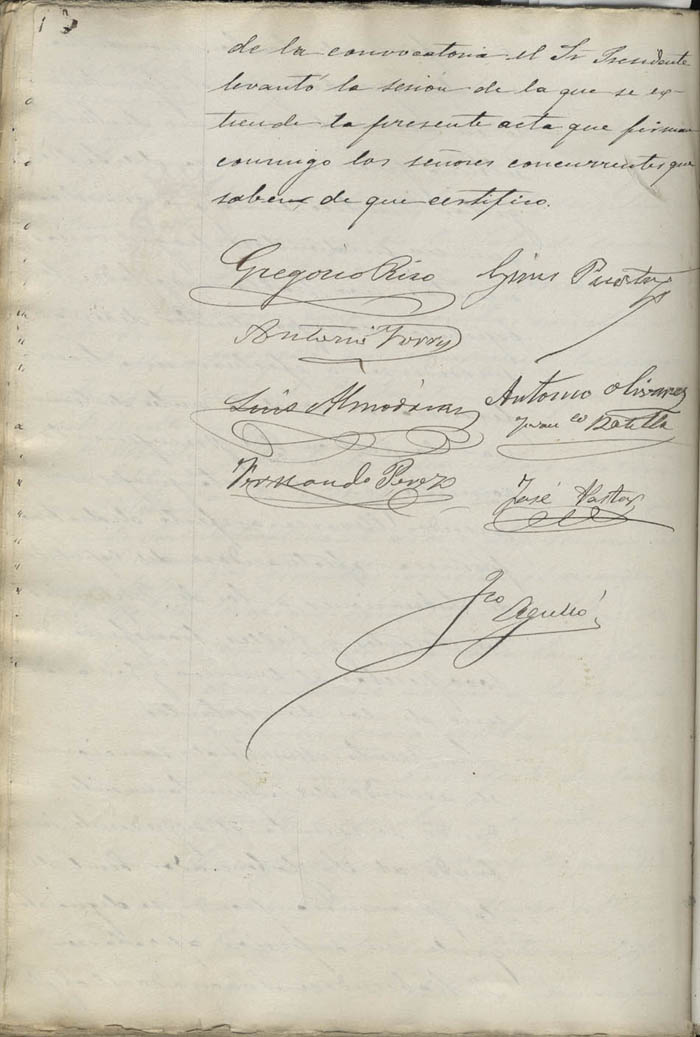 de la convocatoria el Sr Presidente
levantó la sesion de la que se ex-
tiende la presente acta que firman
conmigo los señores concurrentes que
saben de que certifico.
Gregorio Riso Gines Puerta
Antonio Torres
Luis Almodóvar Antonio Olivares
Franco Botella
Fernando Perez
José Pastor
Fco Agulló